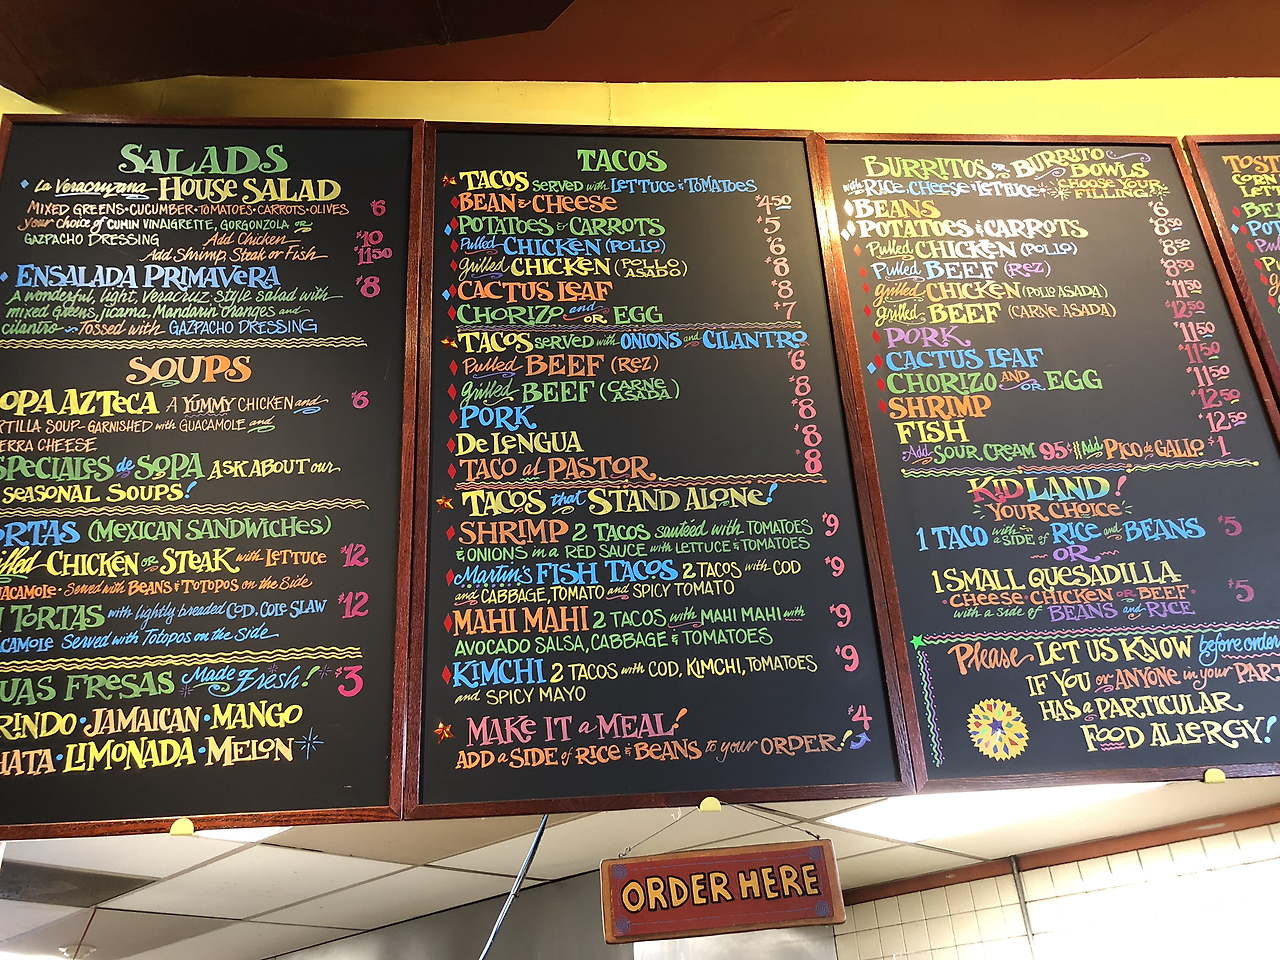 SALADS
La Veracruzana HOUSE SALAD
MIXED GREENS • CUCUMBER • TOMATOES • CARROTS • OLIVES $6
your choice of CUMIN VINAIGRETTE, GORGONZOLA or
GAZPACHO DRESSING Add Chicken $10
Add Shrimp, Steak or Fish $11.50
ENSALADA PRIMAVERA $8
A wonderful, light, Veracruz style salad with
mixed greens, jicama, Mandarin oranges and
cilantro ~ Tossed with GAZPACHO DRESSING
SOUPS
OPA AZTECA A YUMMY CHICKEN and $6
RTILLA SOUP - GARNISHED with GUACAMOLE and
ERRA CHEESE
SPECIALES de SOPA ASK ABOUT our
SEASONAL SOUPS!
ORTAS (MEXICAN SANDWICHES)
illed CHICKEN or STEAK with LETTUCE $12
UACAMOLE • Served with BEANS & TOTOPOS on the Side
TORTAS with lightly breaded COD, COLE SLAW $12
CAMOLE Served with Totopos on the side
UAS FRESAS Made Fresh! $3
RINDO • JAMAICAN • MANGO
HATA • LIMONADA • MELON
TACOS
TACOS SERVED with LETTUCE & TOMATOES
BEAN & CHEESE $4.50
POTATOES & CARROTS $5
Pulled CHICKEN (POLLO) $6
grilled CHICKEN (POLLO ASADO) $8
CACTUS LEAF $8
CHORIZO and OR EGG $7
TACOS SERVED with ONIONS and CILANTRO
Pulled BEEF (REZ) $6
grilled BEEF (CARNE ASADA) $8
PORK $8
DE LENGUA $8
TACO al PASTOR $8
TACOS that STAND ALONE!
SHRIMP 2 TACOS sautéed with TOMATOES $9
& ONIONS in a RED SAUCE with LETTUCE & TOMATOES
Martin's FISH TACOS 2 TACOS with COD $9
and CABBAGE, TOMATO and SPICY TOMATO
MAHI MAHI 2 TACOS with MAHI MAHI with $9
AVOCADO SALSA, CABBAGE & TOMATOES
KIMCHI 2 TACOS with COD, KIMCHI, TOMATOES $9
and SPICY MAYO
MAKE IT a MEAL! $4
ADD a SIDE of RICE & BEANS to your ORDER!
BURRITOS OR BURRITO BOWLS
with RICE, CHEESE & LETTUCE CHOOSE YOUR FILLING
BEANS $6
POTATOES & CARROTS 8.50
Pulled CHICKEN (POLLO) $8.50
Pulled BEEF (REZ) 8.50
grilled CHICKEN (POLLO ASADA) 11.50
grilled BEEF (CARNE ASADA) 12.50
PORK 11.50
CACTUS LEAF 11.50
CHORIZO AND OR EGG 11.50
SHRIMP 12.50
FISH 12.50
Add SOUR CREAM 95¢ Add PICO de GALLO $1
KIDLAND!
YOUR CHOICE
1 TACO with a SIDE of RICE and BEANS $5
OR
1 SMALL QUESADILLA
• CHEESE • CHICKEN OR BEEF • $5
with a side of BEANS and RICE
Please LET US KNOW before order
IF YOU or ANYONE in your PAR
HAS a PARTICULAR
FOOD ALLERGY!
TOST
CORN
LETT
BE
POT
ORDER HERE